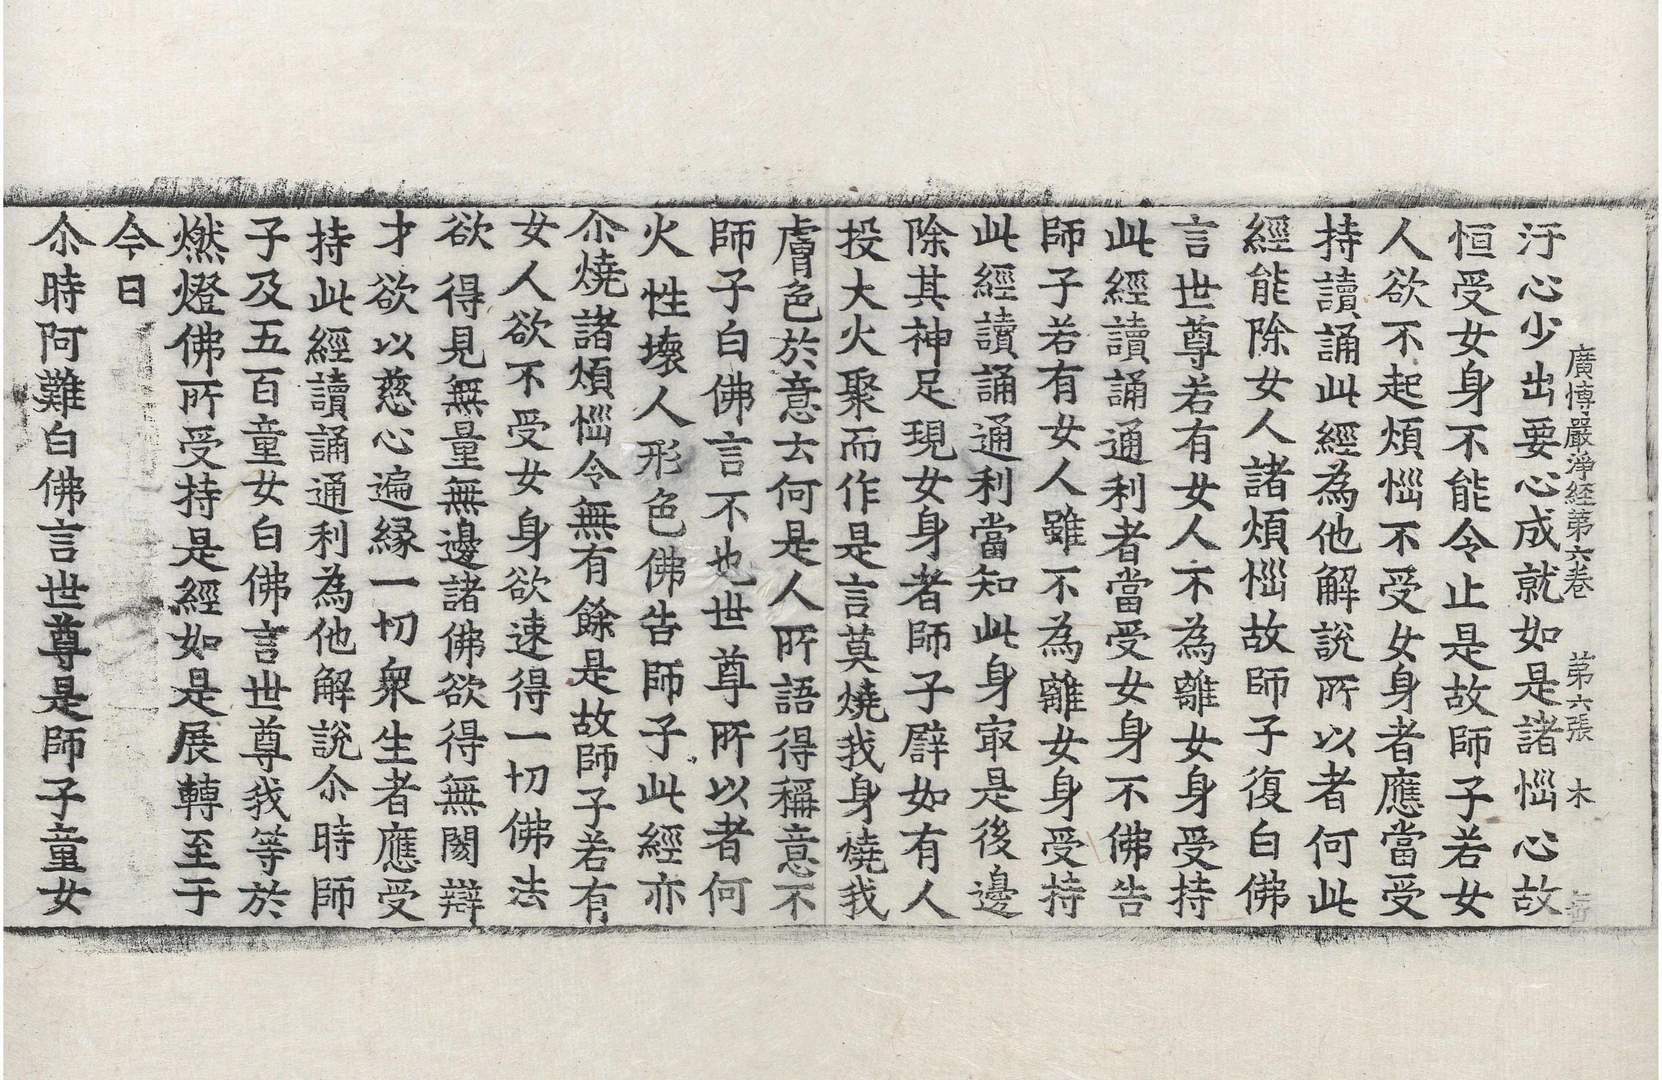 廣博嚴淨経第六卷　第六張　木
汙心少出要心成就如是諸惱心故
恒受女身不能令止是故師子若女
人欲不起煩惱不受女身者應當受
持讀誦此經為他解說所以者何此
經能除女人諸煩惱故師子復白佛
言世尊若有女人不為離女身受持
此經讀誦通利者當受女身不佛告
師子若有女人雖不為離女身受持
此經讀誦通利當知此身㝡是後邊
除其神足現女身者師子辟如有人
投大火聚而作是言莫燒我身燒我
膚色於意云何是人所語得稱意不
師子白佛言不也世尊所以者何
火性壞人形色佛告師子此經亦
尒燒諸煩惱令無有餘是故師子若有
女人欲不受女身欲速得一切佛法
欲得見無量無邊諸佛欲得無閡辯
才欲以慈心遍緣一切眾生者應受
持此經讀誦通利為他解說尒時師
子及五百童女白佛言世尊我等於
燃燈佛所受持是經如是展轉至于
今日
尒時阿難白佛言世尊是師子童女